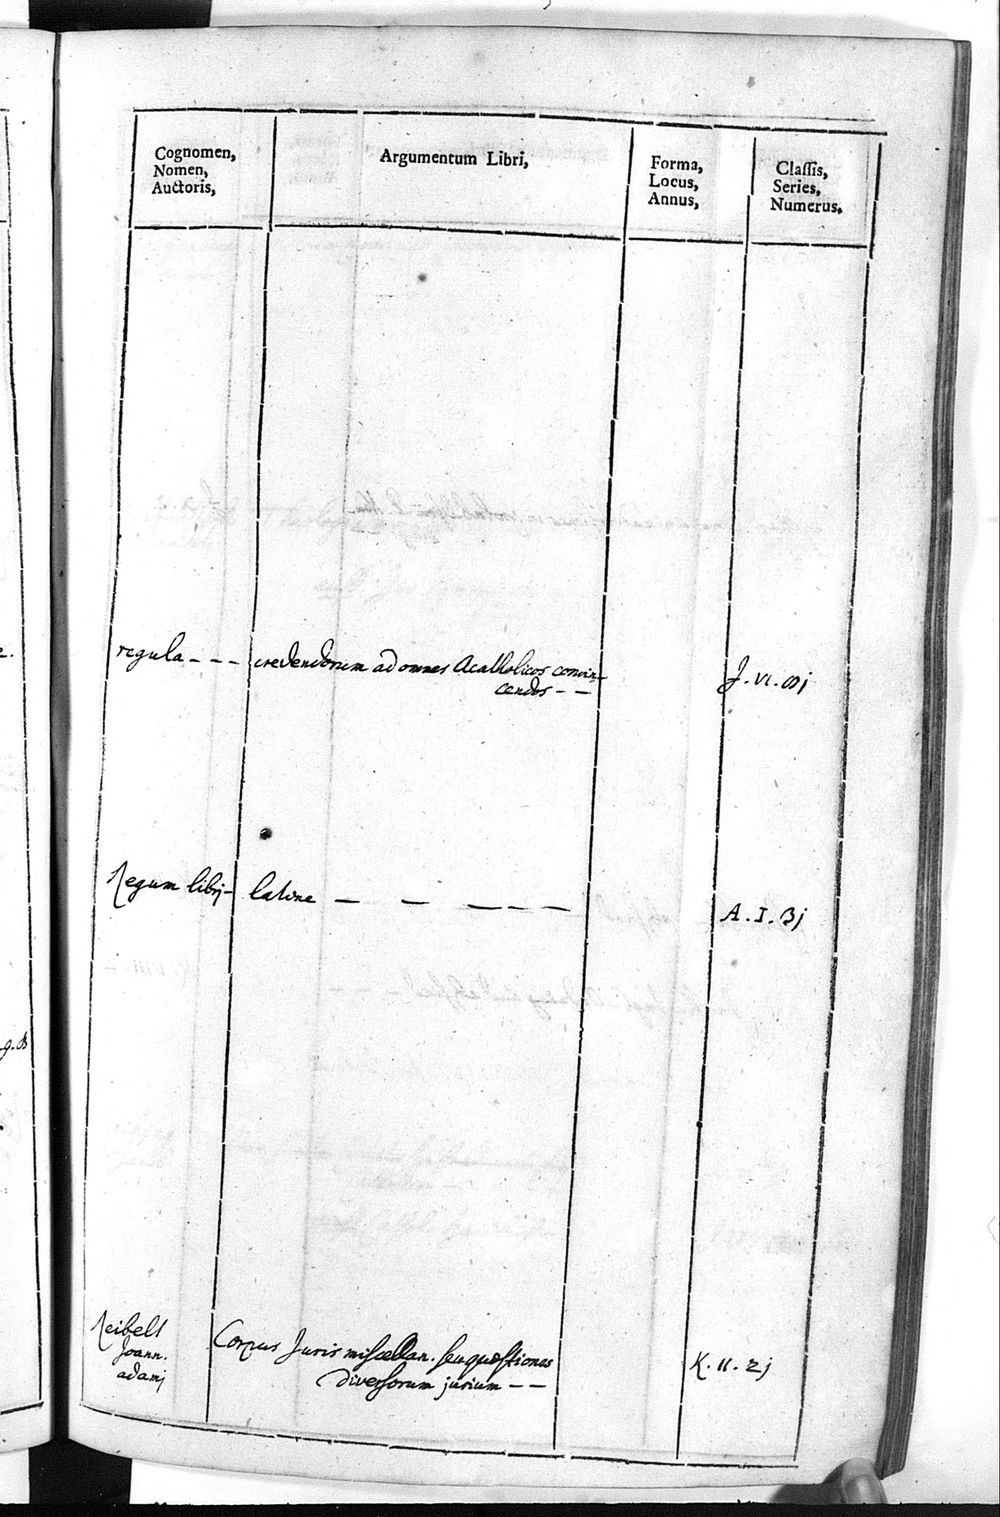 Cognomen,
Nomen,
Auctoris,
Argumentum Libri,
Forma,
Locus,
Annus,
Classis,
Series,
Numerus.
regula - - - credendorum ad omnes Acatholicos convin-
cendos - -
J. VI.
Regum libri - latine - - - - -
A. I. 3j
Reibelt
Joann.
adamj
Corpus Juris miscellan. seu quæstiones
diversorum jurium - -
K. II. 2j